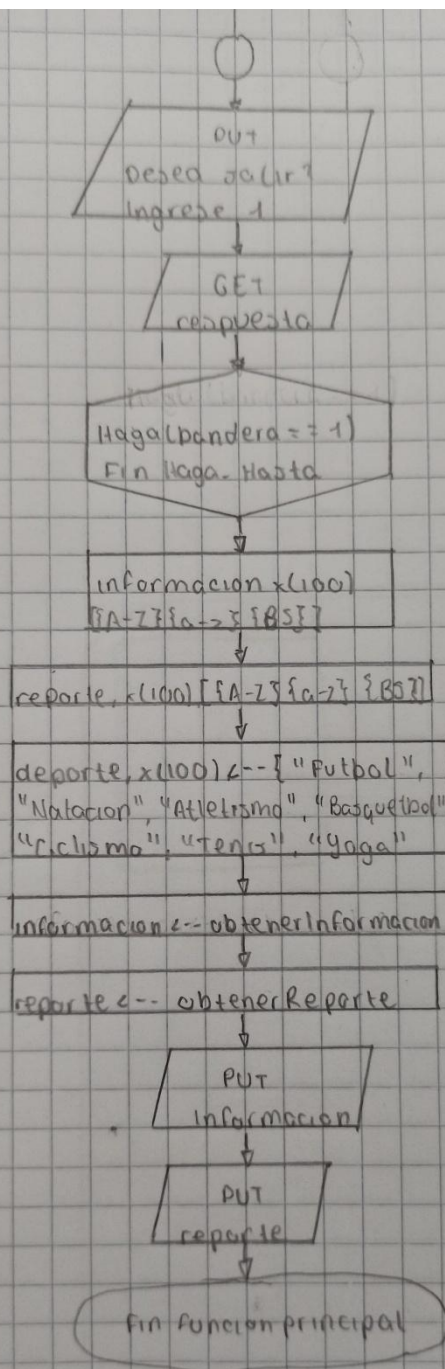 PUT
Desea salir?
Ingrese 1
GET
respuesta
Haga(bandera == 1)
Fin Haga-Hasta
informacion x(100)
[{A-Z}{a-z}{BS}]
reporte, x(100)[{A-Z}{a-z}{BS}]
deporte, x(100) <-- { "Futbol",
"Natacion", "Atletismo", "Basquetbol"
"Ciclismo", "Tenis", "Yoga"
informacion <-- obtenerInformacion
reporte <-- obtenerReporte
PUT
informacion
PUT
reporte
Fin funcion principal